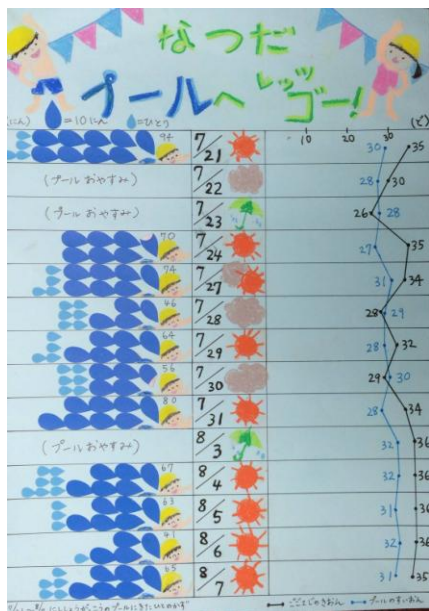 なつだ
プールへ レッツゴー!
(にん) =10にん =ひとり
10 20 30 (ど)
94 7/21 30 35
(プールおやすみ) 7/22 28 30
(プールおやすみ) 7/23 26 28
70 7/24 27 35
74 7/27 31 34
46 7/28 28 29
64 7/29 28 32
56 7/30 29 30
80 7/31 28 34
(プールおやすみ) 8/3 32 36
67 8/4 32 36
63 8/5 31 36
41 8/6 32 36
65 8/7 31 35
ごご1じのきおん プールのすいおん